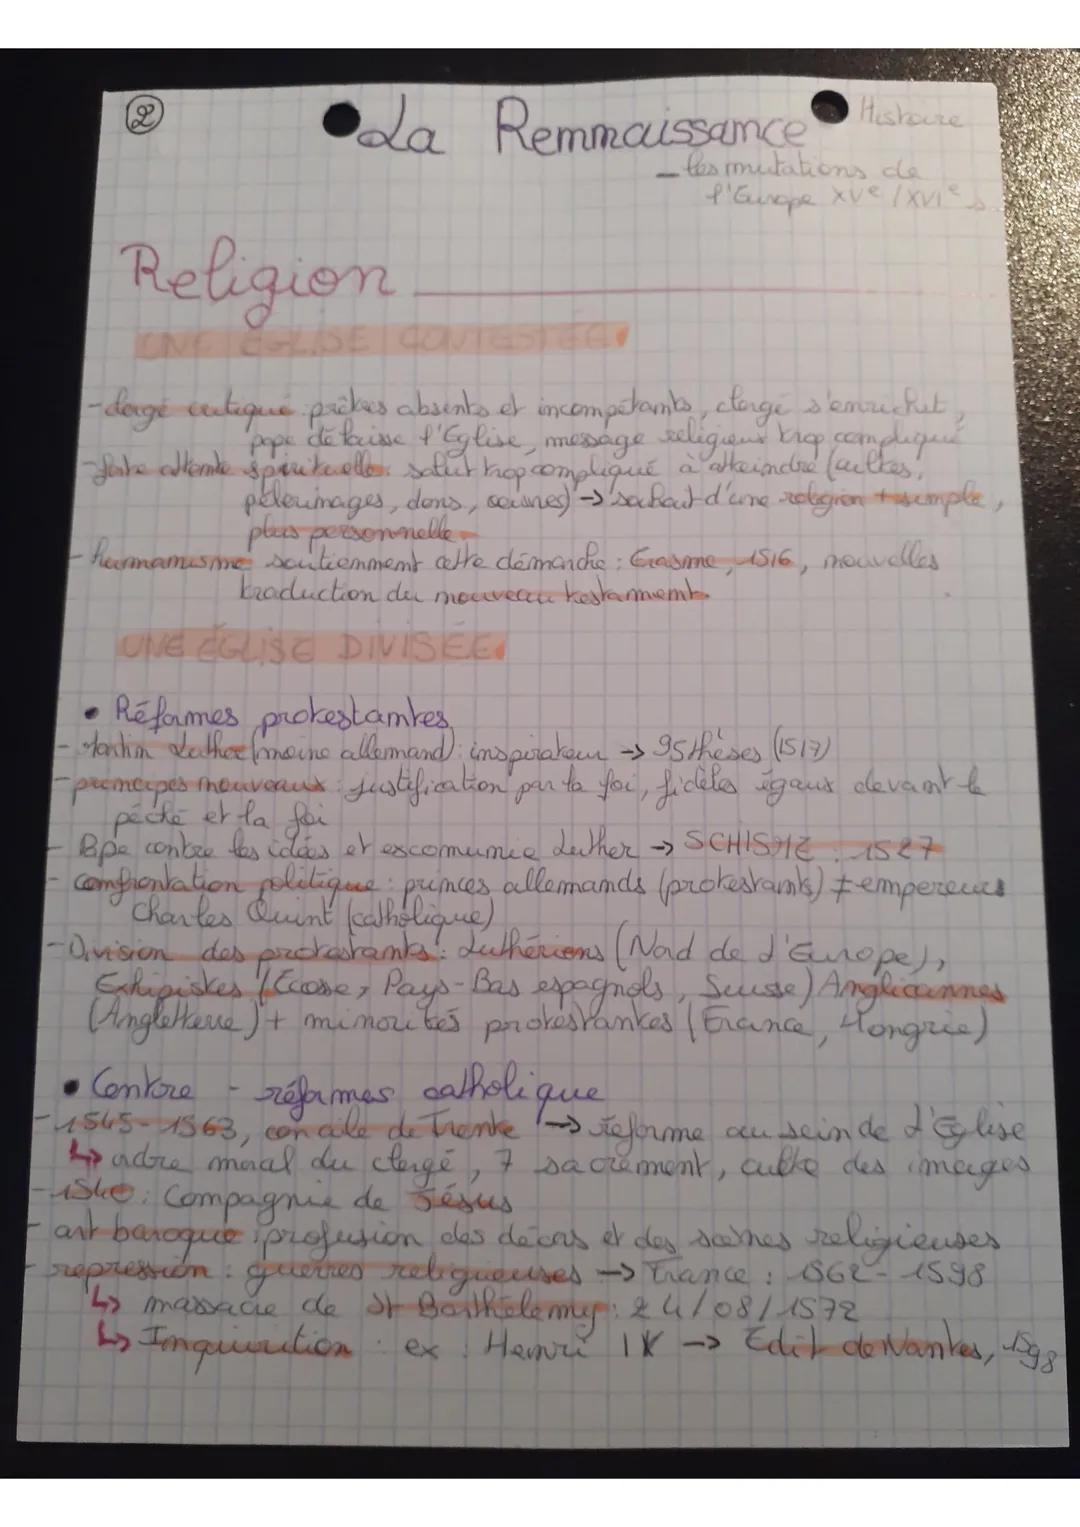 2
La Remmaissance
Histoire
- les mutations de
l'Europe XVe / XVIe s.
Religion
UNE EGLISE CONTESTÉE
- clergé critiqué : prêtres absents et incompétants, clergé s'enrichit,
pape délaisse l'Eglise, message religieux trop compliqué
- forte attente spirituelle : salut trop compliqué à atteindre (cultes,
pélerinages, dons, ) → souhait d'une religion + simple,
plus personnelle
- humanisme soutiennent cette démarche : Erasme, 1516, nouvelles
traduction du nouveau testamment.
UNE EGLISE DIVISÉE
• Réformes protestantes
- Martin Luther (moine allemand) : inspirateur → 95 thèses (1517)
- principes nouveaux : justification par la foi, fidèles égaux devant le
péché et la foi
- Pape contre les idées et escomunie Luther → SCHISME : 1527
- confrontation politique : princes allemands (protestants) ≠ empereurs
Charles Quint (catholique)
- Division des protestants : Luthériens (Nord de l'Europe),
(Ecosse, Pays-Bas espagnols, Suisse) Anglicannes
(Angleterre) + minorités protestantes (France, Hongrie)
• Contre - réformes catholique
- 1545-1563, concile de Trente → réforme au sein de l'Eglise
↳ ordre moral du clergé, 7 sacrement, culte des images
- 1540 : Compagnie de Jésus
- art baroque : profusion des décors et des scènes religieuses
- répression : guerres religieuses → France : 1562-1598
↳ massacre de St Barthélemy : 24/08/1572
↳ Inquisition : ex : Henri IV → Edit de Nantes, 1598